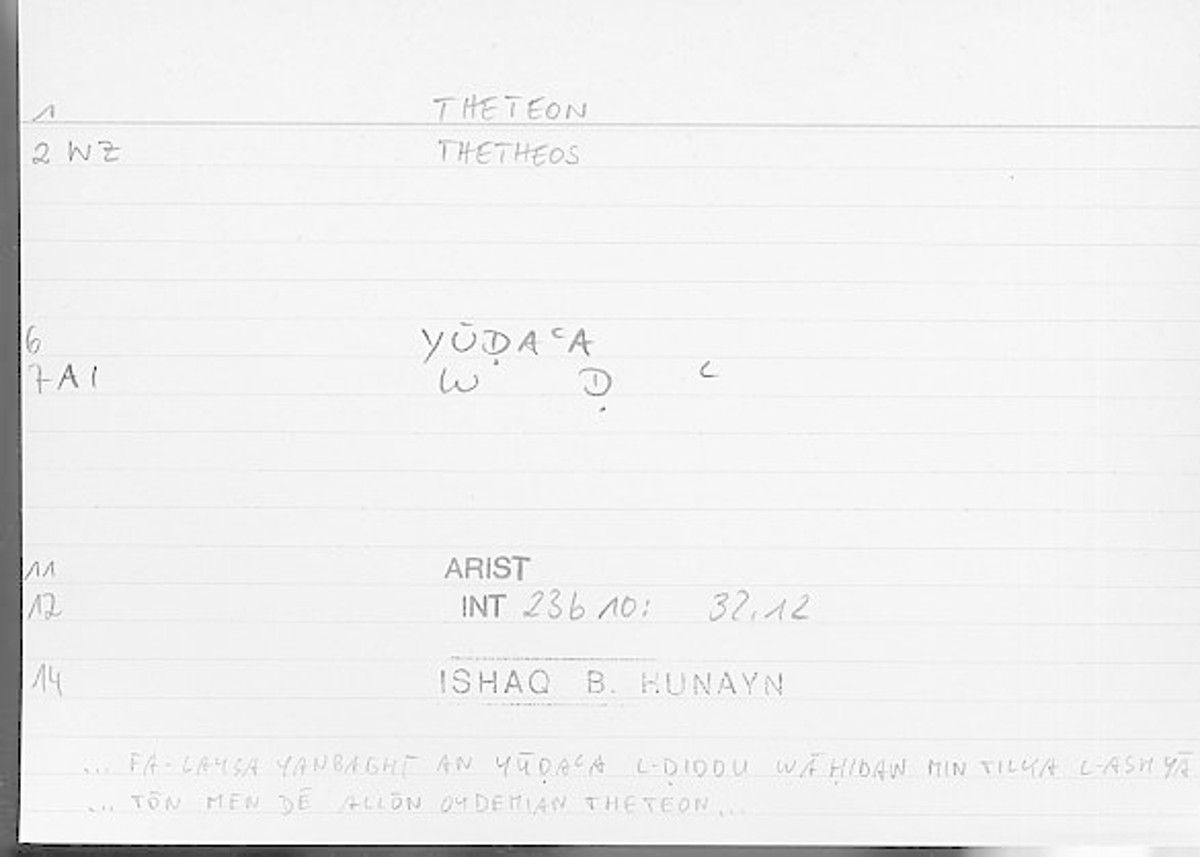 1 THETEON
2 WZ THETHEOS
6 YŪḌAᶜA
7 AI W Ḍ ᶜ
11 ARIST
12 INT 23b 10: 32.12
14 ISHAQ B. HUNAYN
... FA-LAYSA YANBAGHĪ AN YŪḌAᶜA L-ḌIDDU WĀḤIDAN MIN TILKA L-ASHYĀ
... TŌN MEN DĒ ALLŌN OUDEMIAN THETEON...